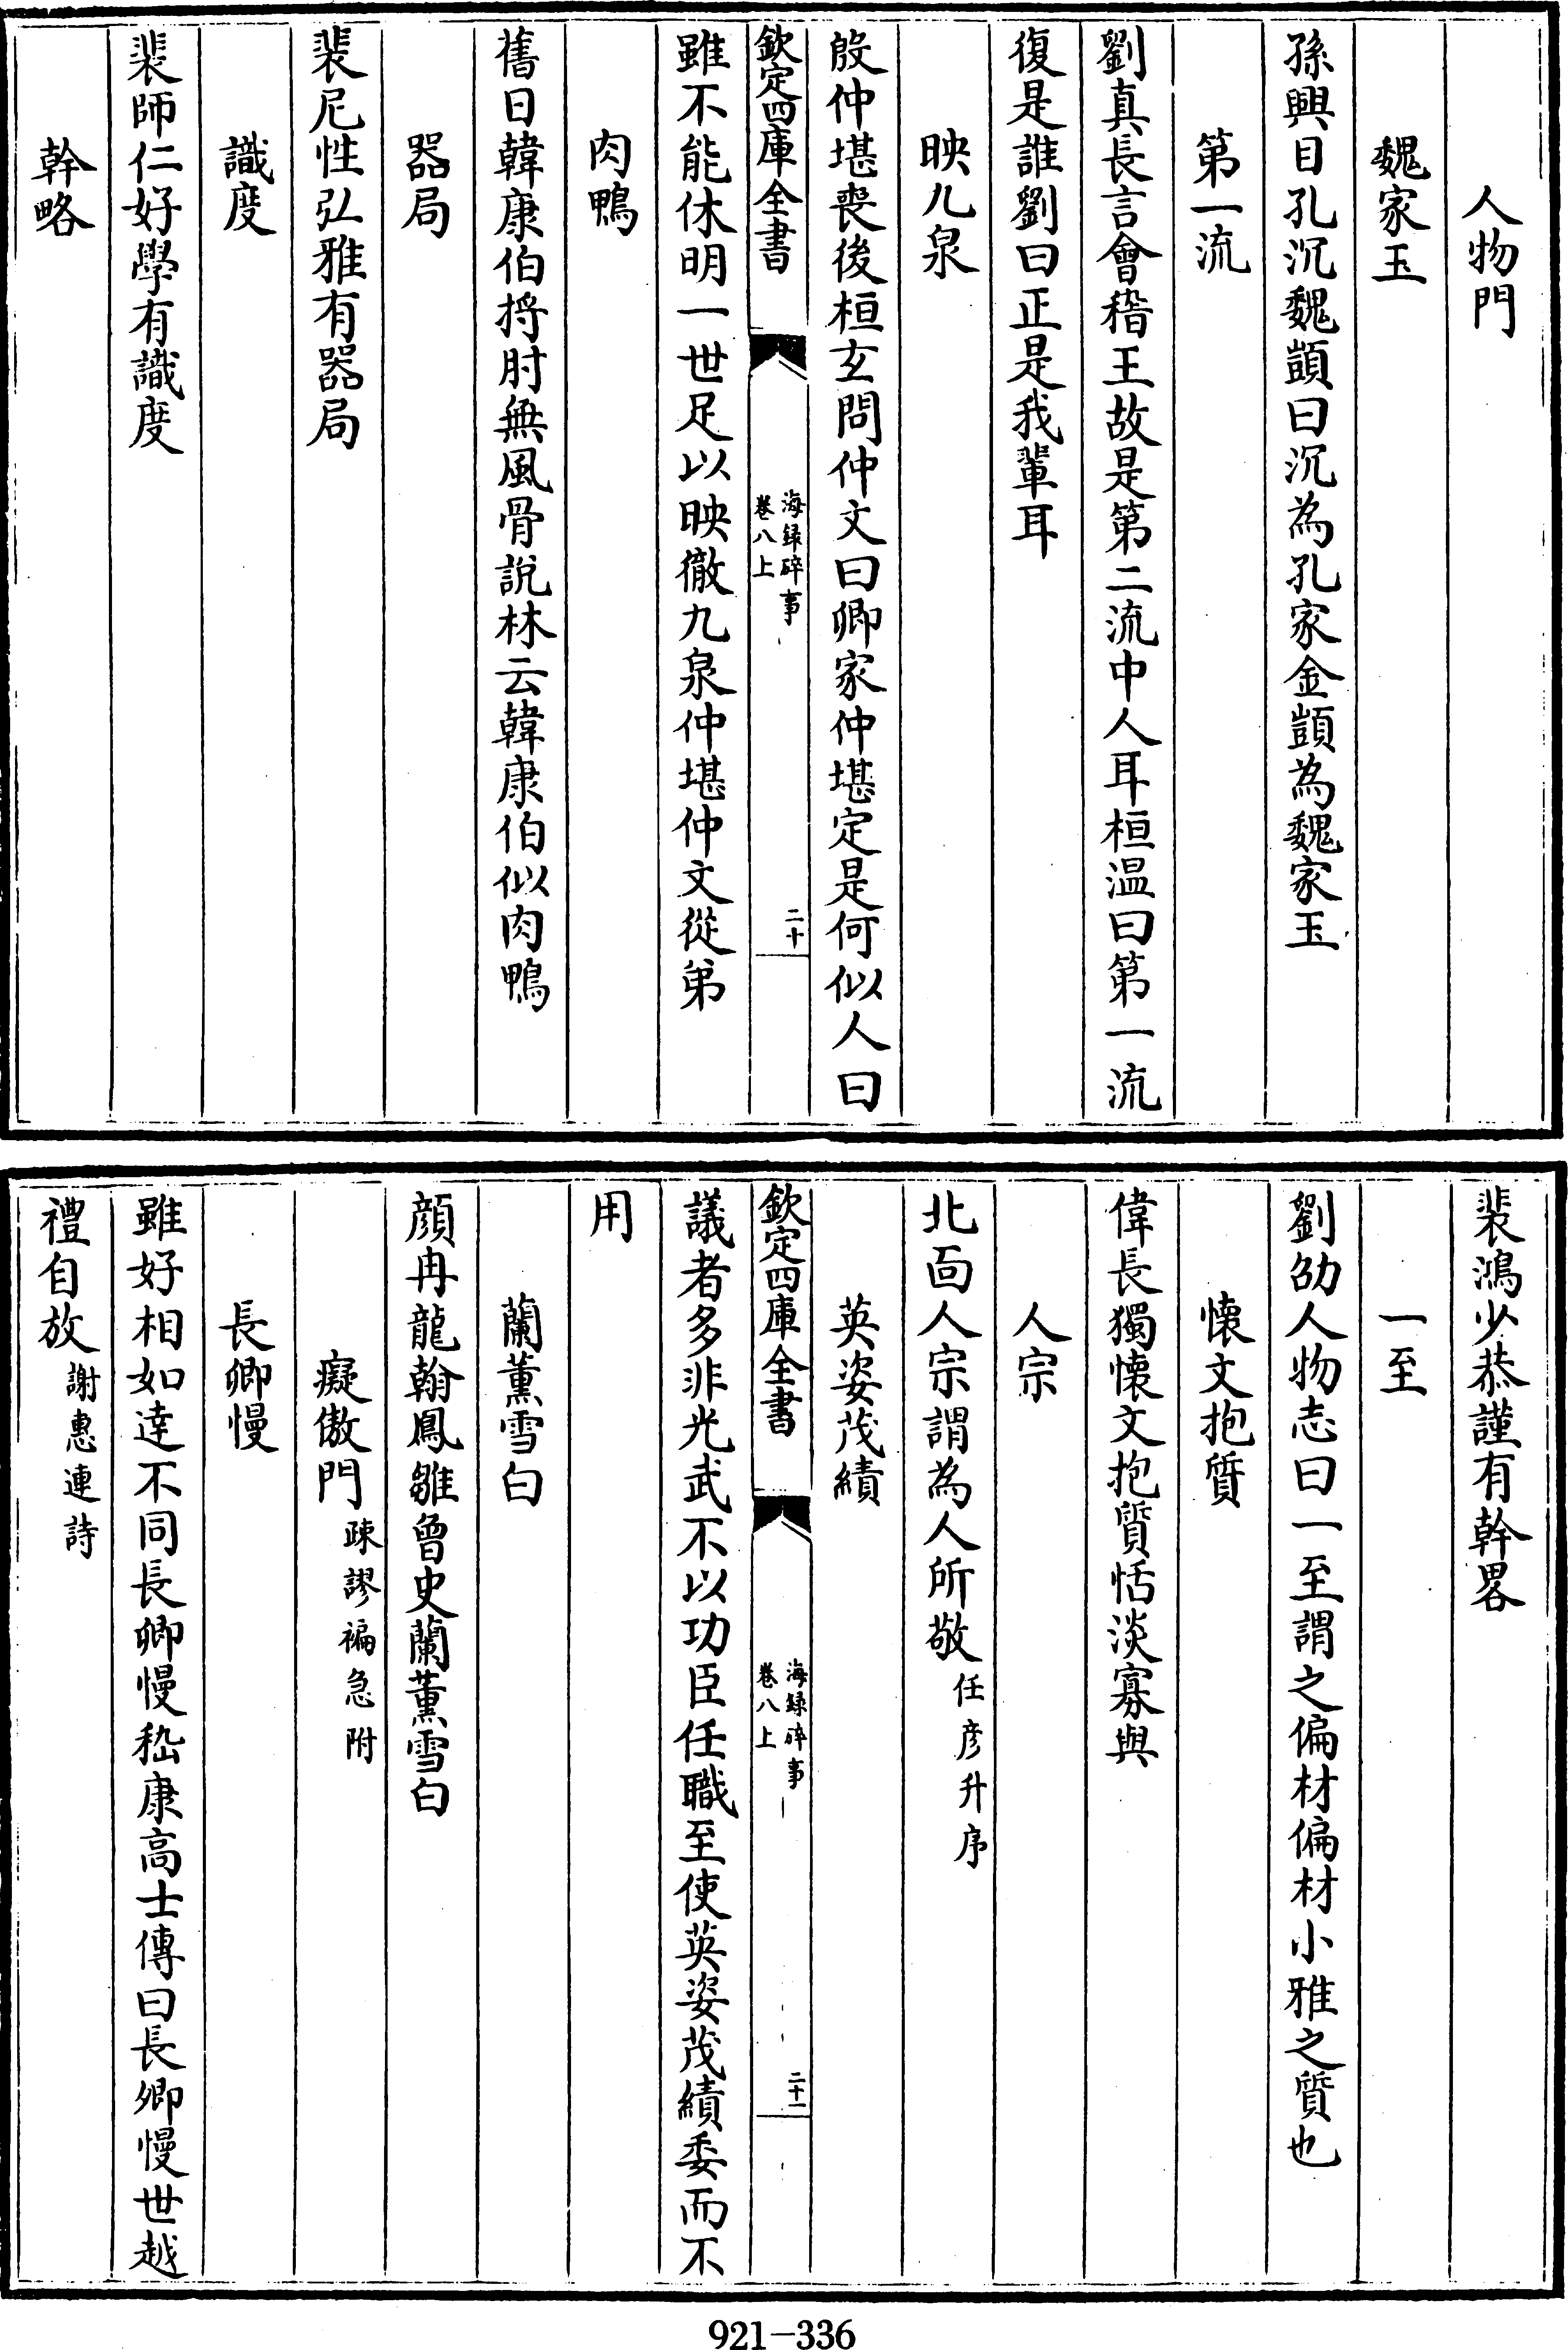 人物門
魏家玉
孫興目孔沉魏顗曰沉為孔家金顗為魏家玉
第一流
劉真長言會稽王故是第二流中人耳桓温曰第一流
復是誰劉曰正是我輩耳
映九泉
殷仲堪喪後桓玄問仲文曰卿家仲堪定是何似人曰
欽定四庫全書
海録碎事
卷八上
二十
雖不能休明一世足以映徹九泉仲堪仲文從弟
肉鴨
舊日韓康伯捋肘無風骨說林云韓康伯似肉鴨
器局
裴尼性弘雅有器局
識度
裴師仁好學有識度
幹略
裴鴻少恭謹有幹畧
一至
劉劭人物志曰一至謂之偏材偏材小雅之質也
懷文抱質
偉長獨懷文抱質恬淡寡與
人宗
北面人宗謂為人所敬任彦升序
英姿茂績
欽定四庫全書
海録碎事
卷八上
二十一
議者多非光武不以功臣任職至使英姿茂績委而不
用
蘭薰雪白
顔冉龍翰鳳雛曾史蘭薰雪白
癡傲門疎謬褊急附
長卿慢
雖好相如達不同長卿慢嵇康高士傳曰長卿慢世越
禮自放謝惠連詩
921-336